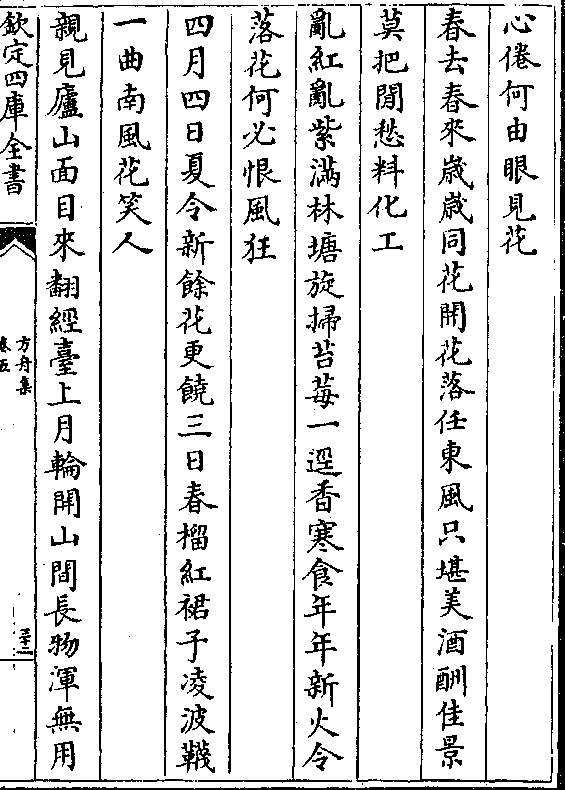 心倦何由眼見花
春去春來嵗嵗同花開花落任東風只堪美酒酬佳景
莫把閒愁料化工
亂紅亂紫滿林塘旋掃苔莓一逕香寒食年年新火令
落花何必恨風狂
四月四日夏令新餘花更饒三日春榴紅裙子凌波韈
一曲南風花笑人
親見廬山面目來翻經臺上月輪開山間長物渾無用
欽定四庫全書
方舟集
卷五